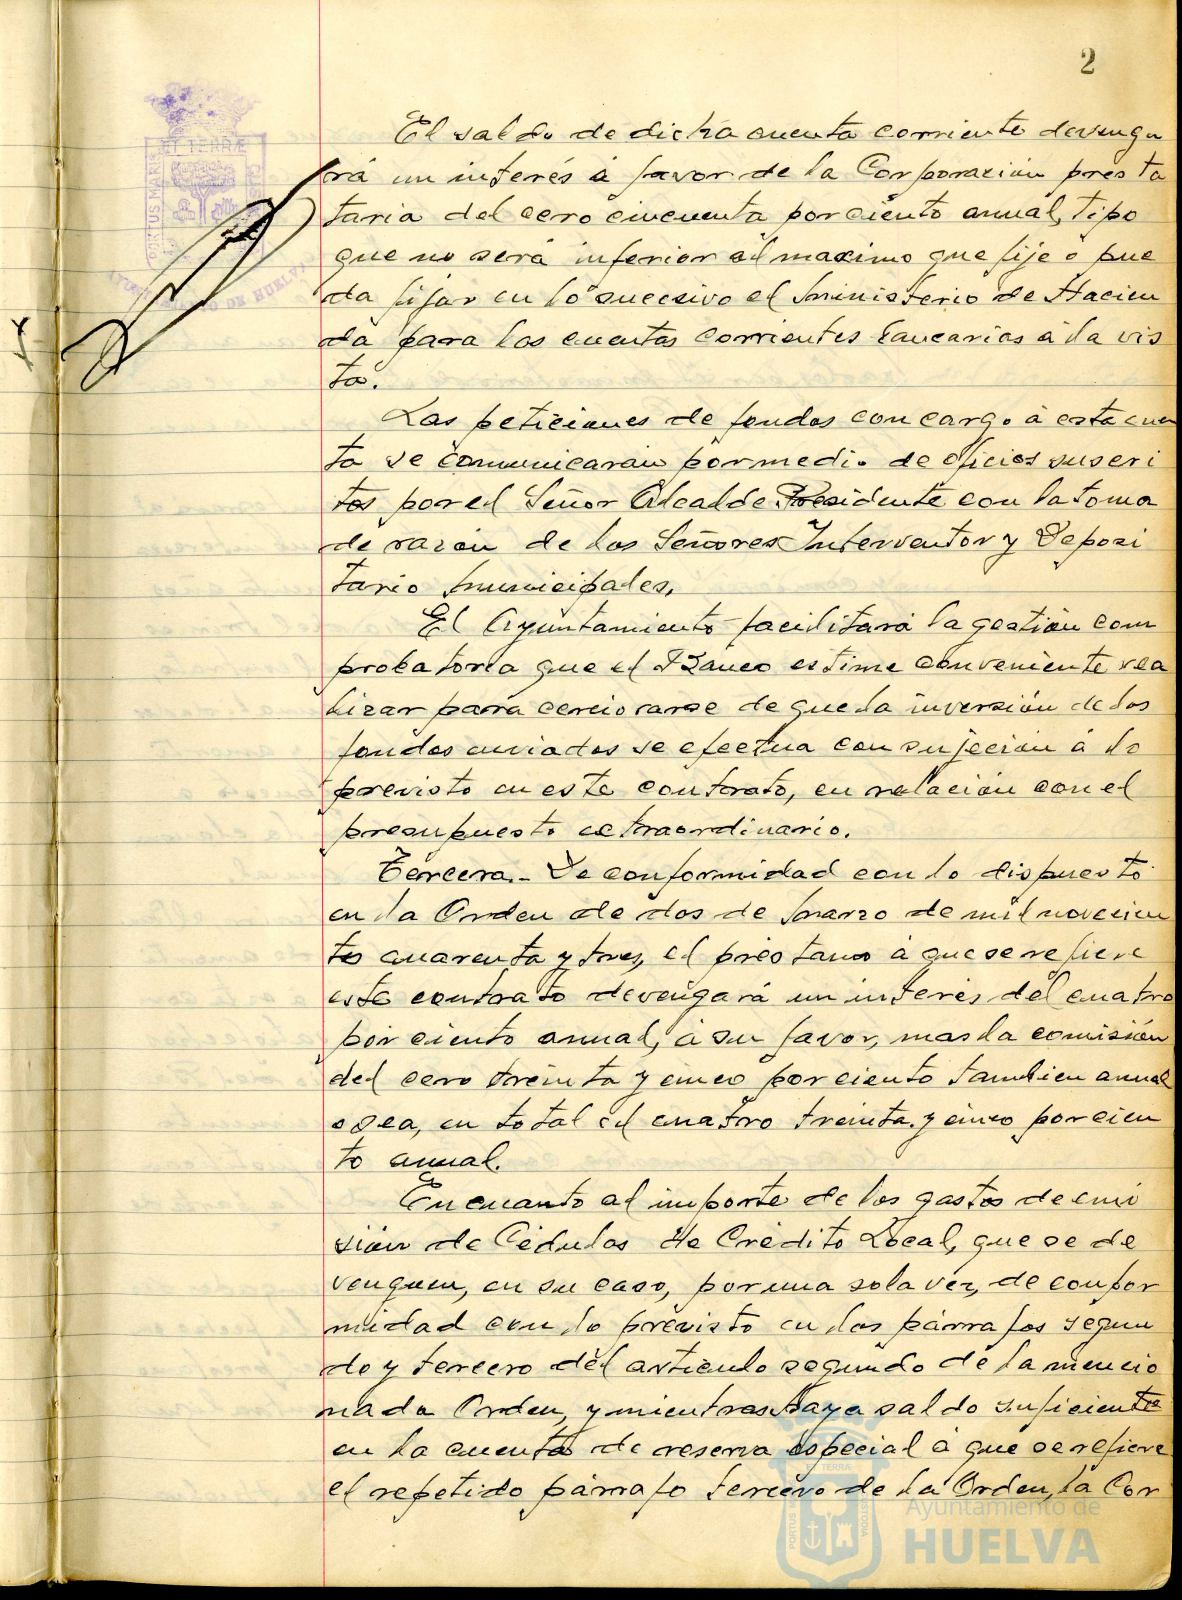 2
El saldo de dicha cuenta corriente devenga
rá un interés á favor de la Corporación presta
taria del cero cincuenta por ciento anual, tipo
que no será inferior al maximo que fije ó pue
da fijar en lo sucesivo el Ministerio de Hacien
da para las cuentas corrientes bancarias á la vis
ta.
Las peticiones de fondos con cargo á esta cuen
ta se comunicarán por medio de oficios suscri
tos por el Señor Alcalde Presidente con la toma
de razón de los Señores Interventor y Deposi
tario Municipales.
El Ayuntamiento facilitará la gestión com
probatoria que el Banco estime conveniente rea
lizar para cerciorarse de que la inversión de los
fondos enviados se efectua con sujeción á lo
previsto en este contrato, en relación con el
presupuesto extraordinario.
Tercera.- De conformidad con lo dispuesto
en la Orden de dos de Marzo de mil novecien
tos cuarenta y tres, el préstamo á que se refiere
este contrato devengará un interés del cuatro
por ciento anual, á su favor, mas la comisión
del cero treinta y cinco por ciento tambien anual
o sea, en total el cuatro treinta y cinco por cien
to anual.
En cuanto al importe de los gastos de emi
sión de Cédulas de Crédito Local, que se de
venguen, en su caso, por una sola vez, de confor
midad con lo previsto en los párrafos segun
do y tercero del articulo segundo de la mencio
nada Orden, y mientras haya saldo suficiente
en la cuenta de reserva especial á que se refiere
el repetido párrafo tercero de la Orden, la Cor
ET TERRÆ
PORTUS MARIS
AYUNTAMIENTO DE HUELVA
Ayuntamiento de
HUELVA